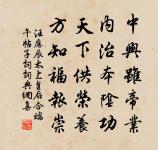 中興雖帝業
內治本陰功
天下供榮養
方知福報崇
汪應辰太上皇后合端
午帖子詞詞典網集